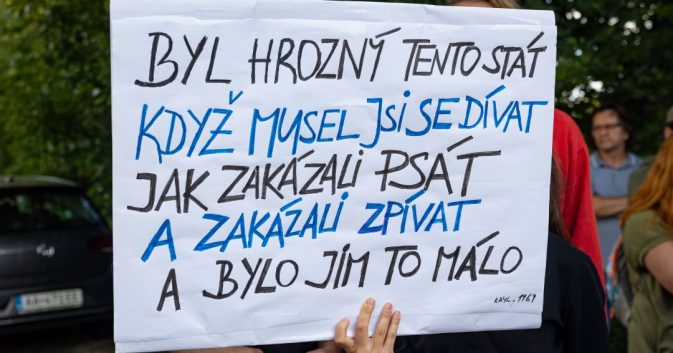 BYL HROZNÝ TENTO STÁT
KDYŽ MUSEL JSI SE DÍVAT
JAK ZAKÁZALI PSÁT
A ZAKÁZALI ZPÍVAT
A BYLO JÍM TO MÁLO
KRYL, 1969